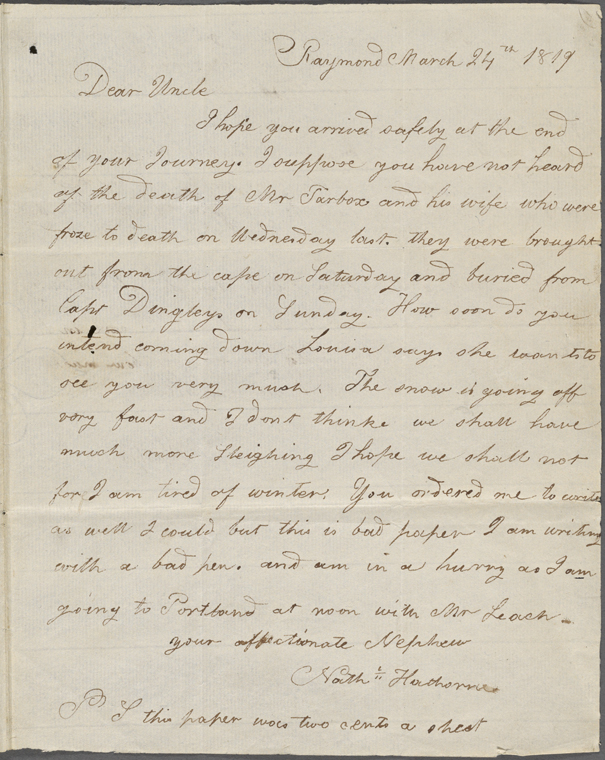 Raymond March 24th 1819
Dear Uncle
I hope you arrived safely at the end
of your Journey. I suppose you have not heard
of the death of Mr Tarbox and his wife who were
froze to death on Wednesday last. they were brought
out from the cape on Saturday and buried from
Capt Dingleys on Sunday. How soon do you
intend coming down Louisa says she wants to
see you very much. The snow is going off
very fast and I dont thinke we shall have
much more Sleighing I hope we shall not
for I am tired of winter. You ordered me to write
as well I could but this is bad paper I am writing
with a bad pen. and am in a hurry as I am
going to Portland at noon with Mr Leach
your affectionate Nephew
Nathll Hathorne
P S this paper was two cents a sheet